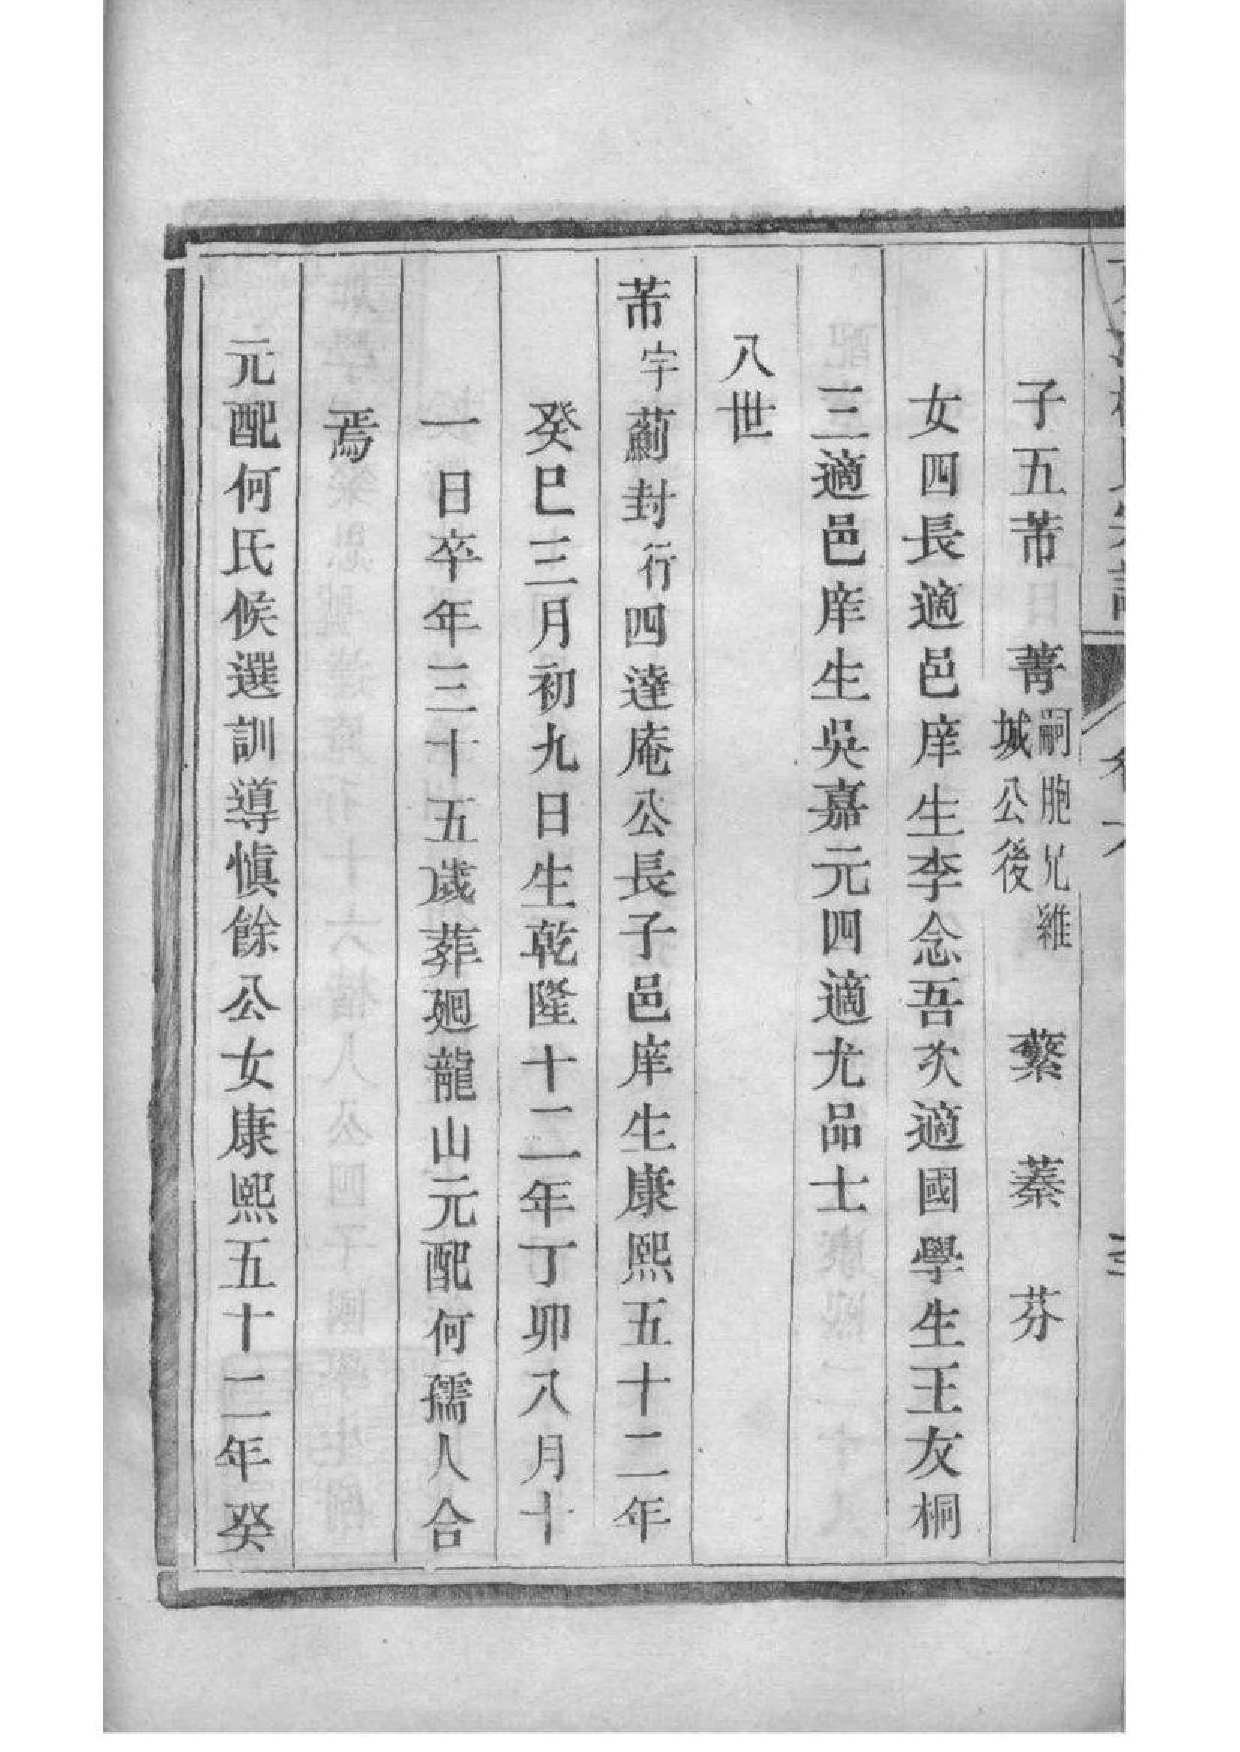 子五芾 菁嗣胞兄維城公後 蘩 蓁 芬
女四長適邑庠生李念吾次適國學生王友桐
三適邑庠生吳嘉元四適尤品士
八世
芾字薊封行四達庵公長子邑庠生康熙五十二年
癸巳三月初九日生乾隆十二年丁卯八月十
一日卒年三十五歲葬廻龍山元配何孺人合
焉
元配何氏候選訓導慎餘公女康熙五十二年癸